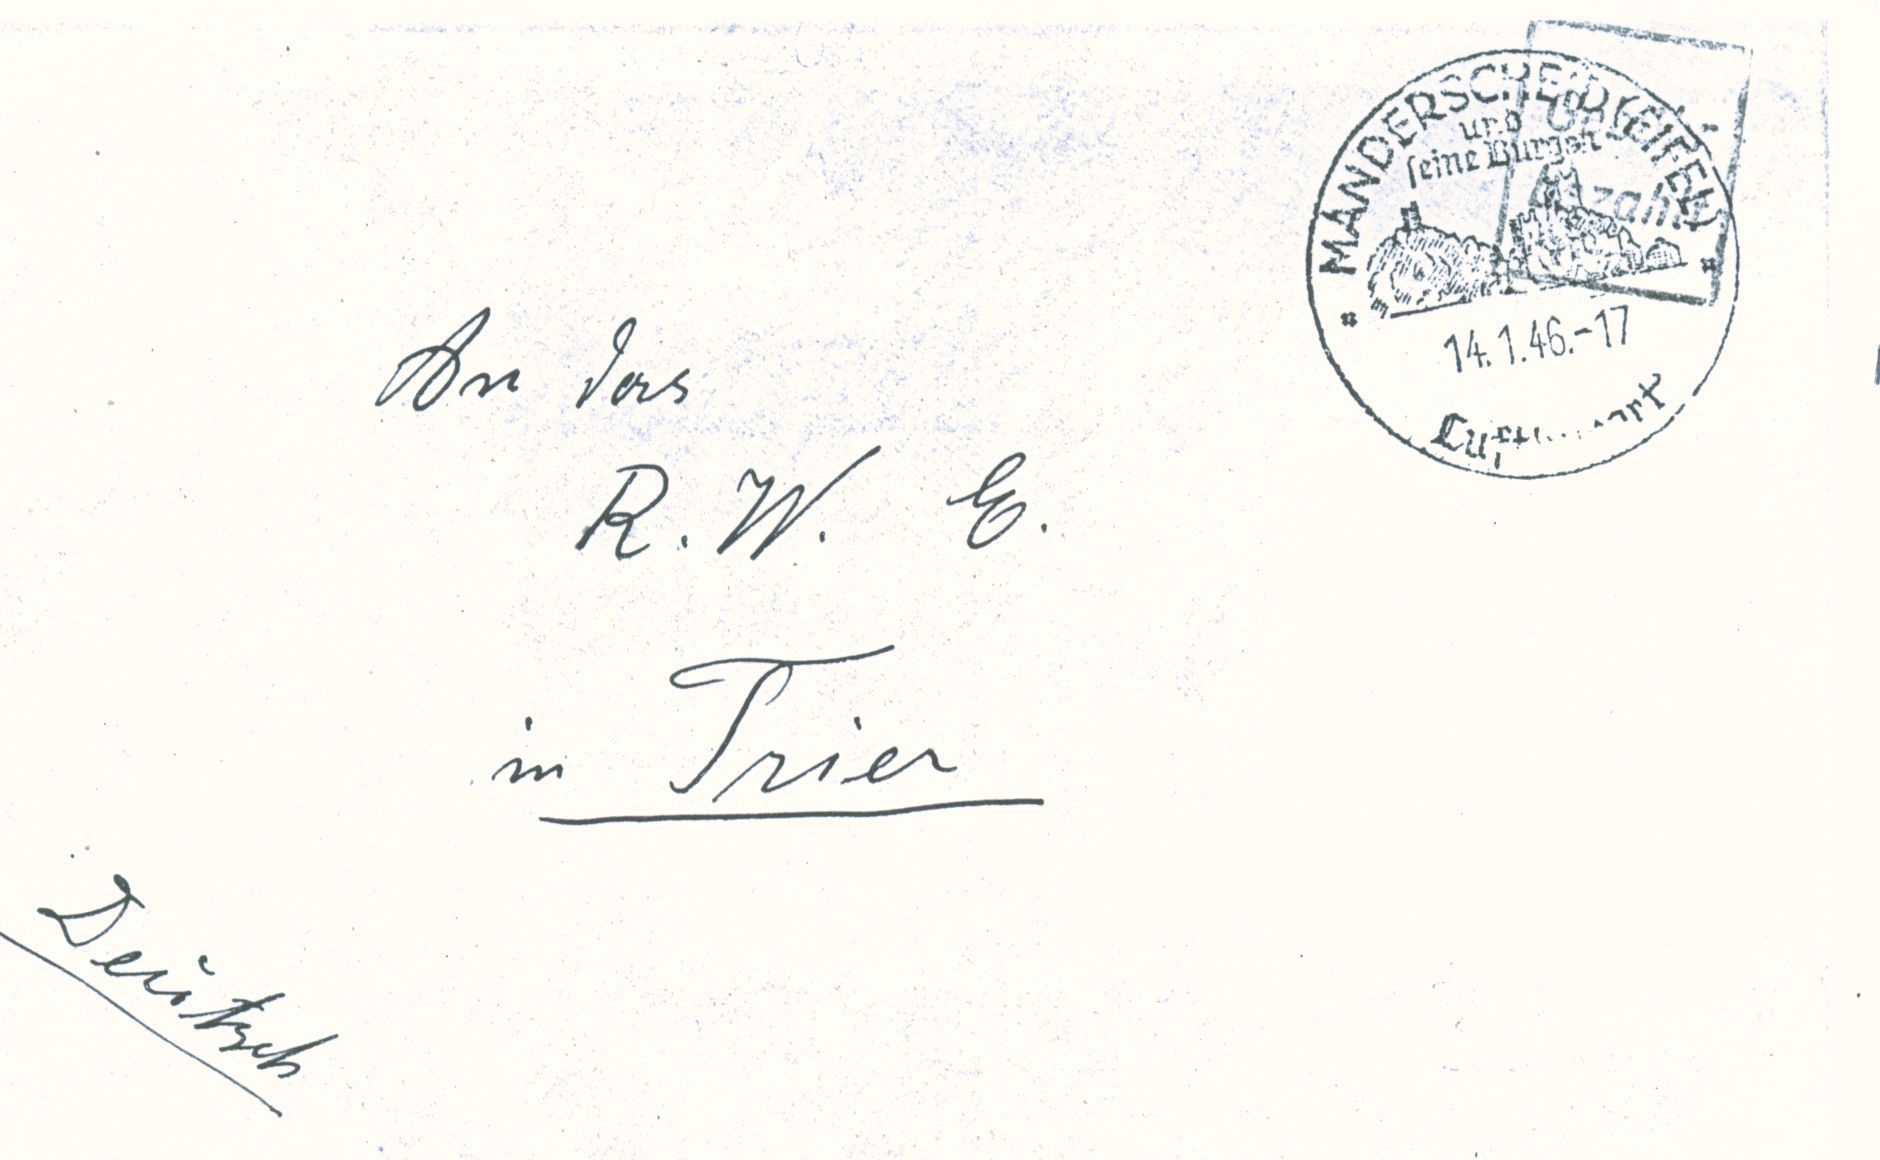 MANDERSCHEID (EIFEL)
und
seine Burgen
14.1.46.-17
An das
R. W. E.
in Trier
Deutsch